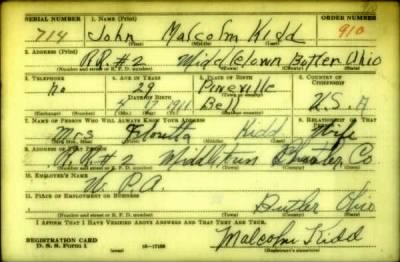 SERIAL NUMBER 1. NAME (Print) ORDER NUMBER
714 John Malcolm Kidd 910
(First) (Middle) (Last)
2. ADDRESS (Print)
R.R. #2 Middletown Butler Ohio
(Number and street or R. F. D. number) (Town) (County) (State)
3. TELEPHONE 4. AGE IN YEARS 5. PLACE OF BIRTH 6. COUNTRY OF CITIZENSHIP
no 29 Pineville
DATE OF BIRTH (Town or county)
4 1911 Bell U.S.A
(Exchange) (Number) (Mo.) (Day) (Yr.) (State or country)
7. NAME OF PERSON WHO WILL ALWAYS KNOW YOUR ADDRESS 8. RELATIONSHIP OF THAT PERSON
Mrs Kidd Wife
(Mr., Mrs., Miss) (First) (Middle) (Last)
9. ADDRESS OF THAT PERSON
R.R. #2 Co
(Number and street or R. F. D. number) (Town) (County) (State)
10. EMPLOYER'S NAME
W. P. A.
11. PLACE OF EMPLOYMENT OR BUSINESS
Butler Ohio
(Number and street or R. F. D. number) (Town) (County) (State)
I AFFIRM THAT I HAVE VERIFIED ABOVE ANSWERS AND THAT THEY ARE TRUE.
REGISTRATION CARD
D. S. S. Form 1 Malcolm Kidd
(Registrant's signature)